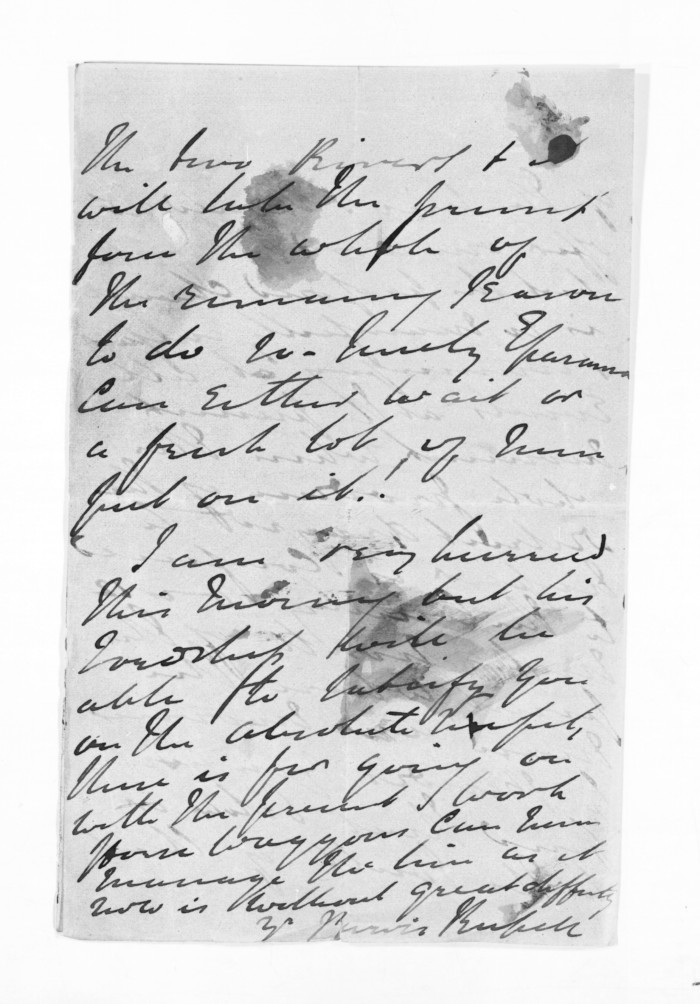 The two Rivers & it
will take the present
force the whole of
the remaing season
to do so - surely
can either wait or
a fresh lot of men
put on it..
I am very hurried
this morning but his
Lordship will be
able to satisfy you
on the absolute
there is for going on
with the present work
Horse waggons can run
manage the line as it
now is without great difficulty
Yr Purvis Russell